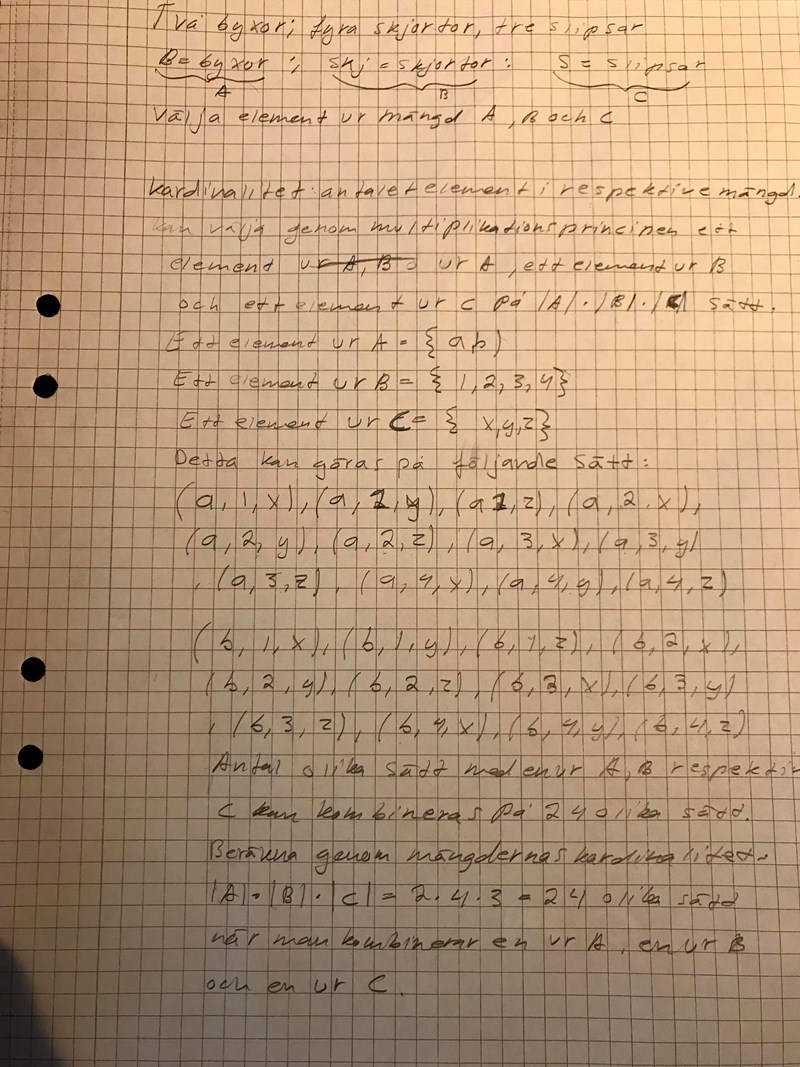 Två byxor; fyra skjortor, tre slipsar
B = byxor ; skj = skjortor : S = slipsar
A B C
Välja element ur mängd A, B och C
Kardinalitet: antalet element i respektive mängd.
kan välja genom multiplikationsprincipen ett
element ur A, B o ur A, ett element ur B
och ett element ur C på |A|·|B|·|C| sätt.
Ett element ur A = {ab)
Ett element ur B = {1,2,3,4}
Ett element ur C = { x,y,z}
Detta kan göras på följande sätt:
(a, 1, x), (a, 1, y), (a 1, z), (a, 2. x),
(a, 2, y), (a, 2, z), (a, 3, x), (a, 3, y)
, (a, 3, z), (a, 4, x), (a, 4, y), (a, 4, z)
(b, 1, x), (b, 1, y), (b, 1, z), (b, 2, x),
(b, 2, y), (b, 2, z), (b, 3, x), (b, 3, y)
, (b, 3, z), (b, 4, x), (b, 4, y), (b, 4, z)
Antal olika sätt med en ur A, B respektiv
C kan kombineras på 24 olika sätt.
Beräkna genom mängdernas kardinalitet.
|A|·|B|·|C| = 2·4·3 = 24 olika sätt
när man kombinerar en ur A, en ur B
och en ur C.